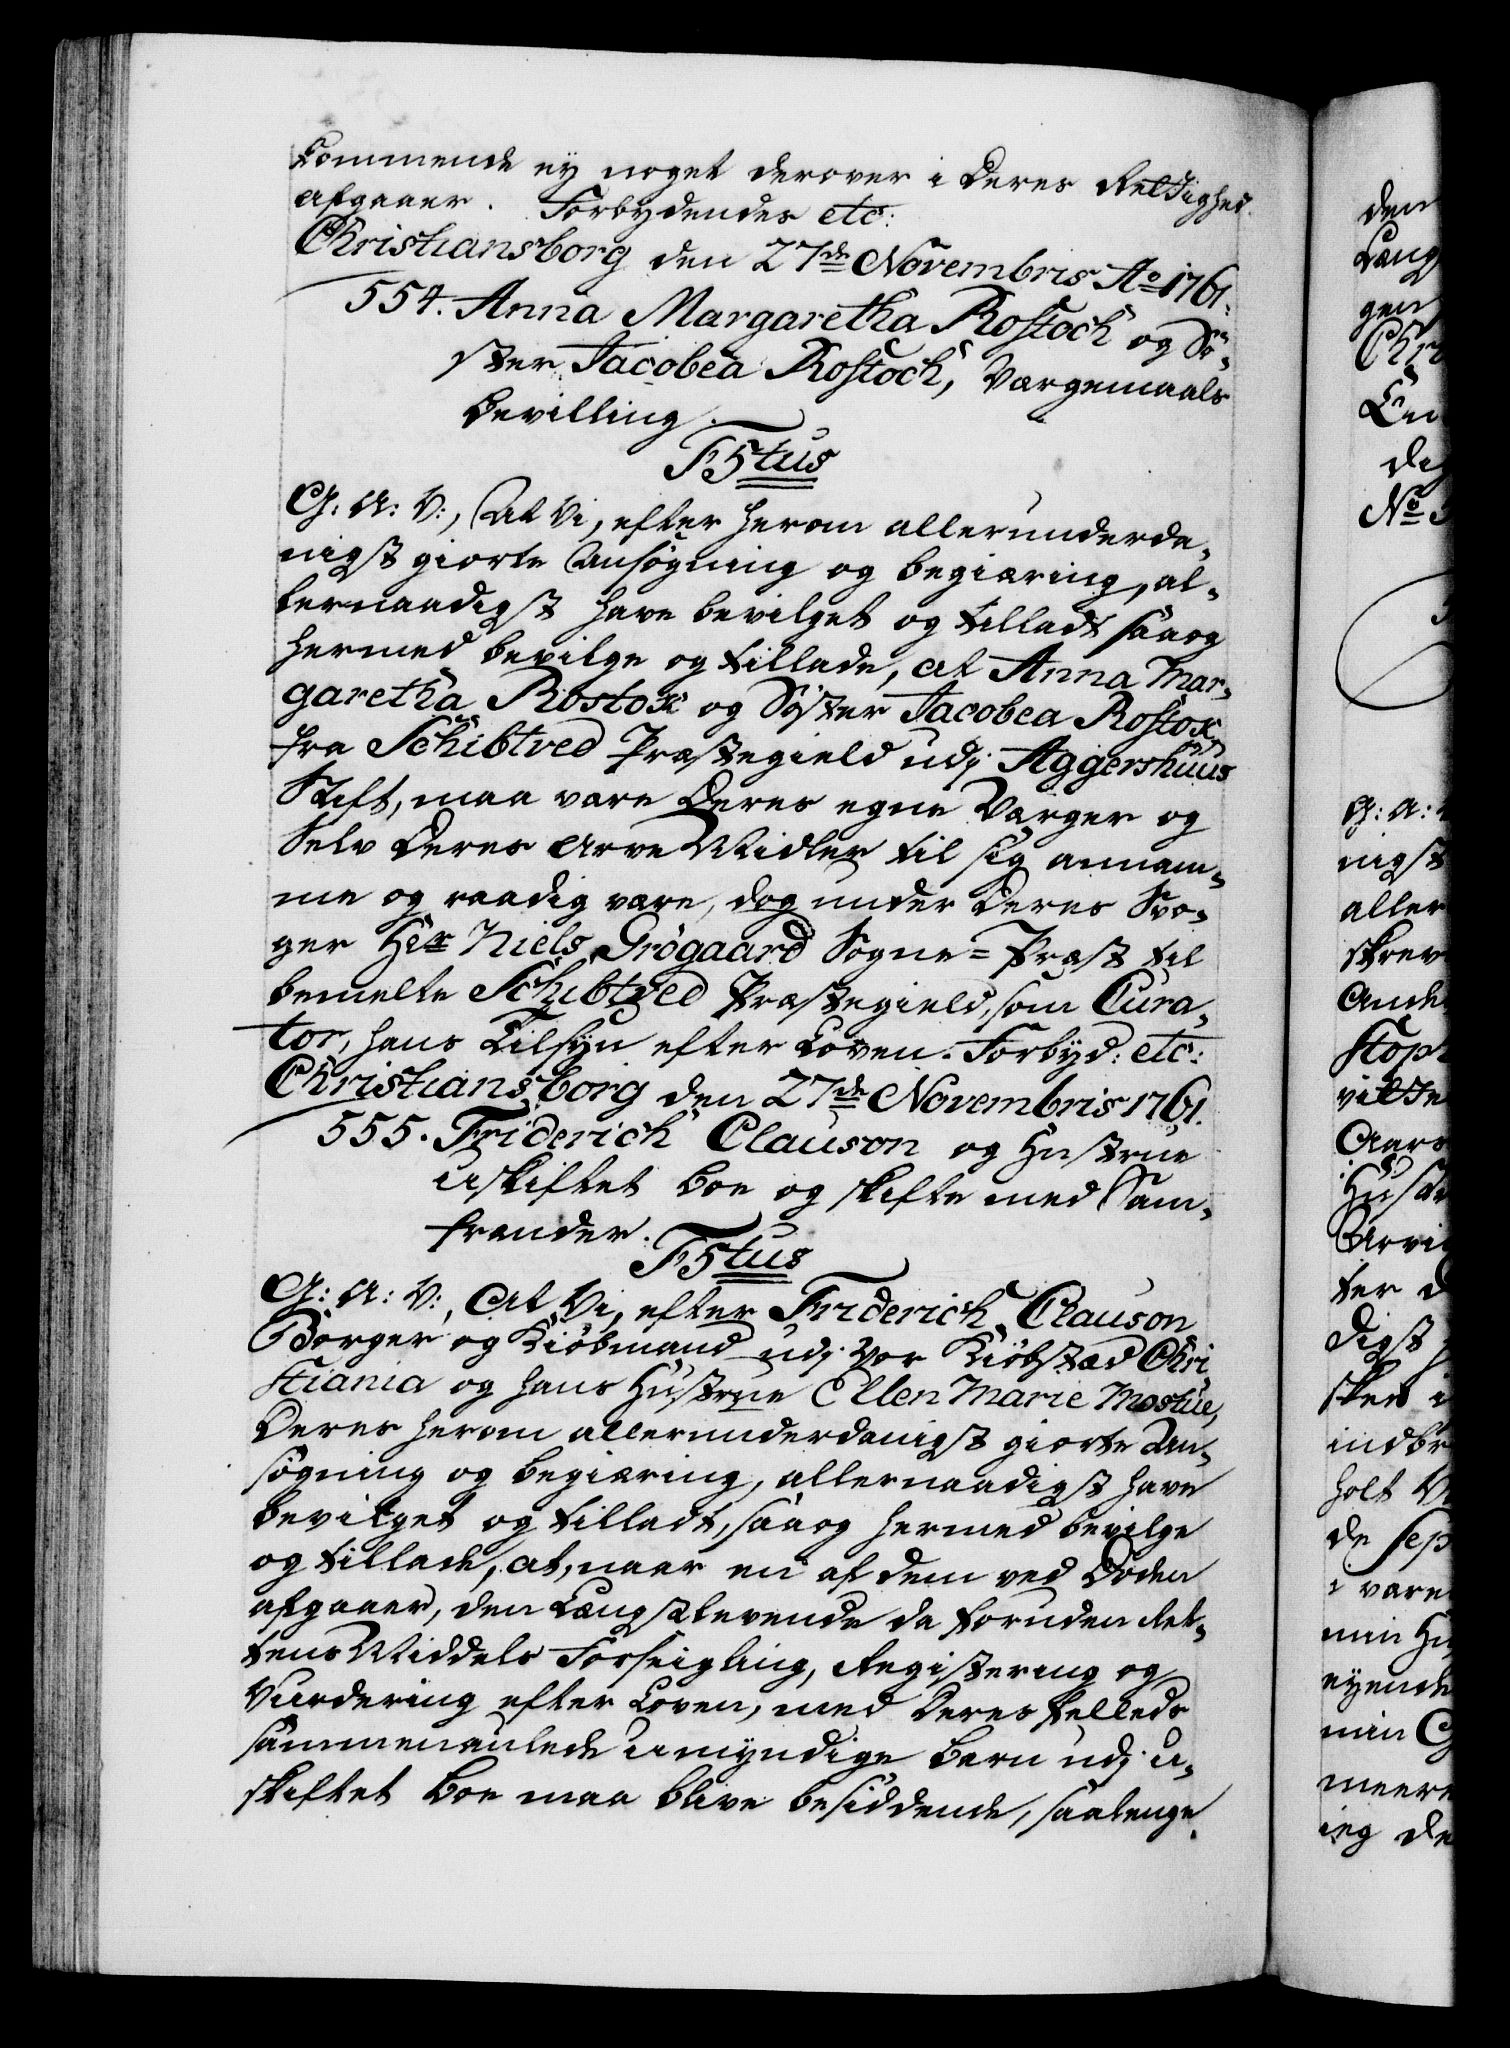 kommende ey noget derover i Deres Rettighed
afgaaer. Forbydendes etc:
Christiansborg den 27de Novembris Ao 1761.
554. Anna Margaretha Rostoch og Sö-
ster Jacobea Rostoch, Værgemaals
Bevilling.
F5tus
G: A: V:, At Vi, efter herom allerunderda-
nigst giorte Ansögning og begiæring, al-
lernaadigst have bevilget og tilladt saa og
hermed bevilge og tillade, at Anna Mar-
garetha Rostox og Söster Jacobea Rostox
fra Schibtved Præstegield udj Aggershuus
Stift, maa være Deres egne Værger og
Selv Deres Arve Midler til sig annam-
me og raadig være, dog under Deres Svo-
ger Her Niels Grögaard Sogne-Præst til
bemelte Schibtved Præstegield, som Cura-
tor, hans Tilsyn efter Loven. Forbyd: etc:
Christiansborg den 27de Novembris 1761.
555. Friderich Clauson og Hustrue
uskiftet Boe og skifte med Sam-
frænder.
F5tus
G: A: V:, At Vi, efter Friderich Clauson
Borger og Kiöbmand udj vor Kiöbstæd Chri
stiania og hans Hustrue Ellen Marie Mostüe,
Deres herom allerunderdanigst giorte An-
søgning og begiæring, allernaadigst have
bevilget og tilladt, saa og hermed bevilge
og tillade, at, naar en af dem ved Döden
afgaaer, den Længstlevende da foruden Ret-
tens Middels Forseigling, Registering og
Vurdering efter Loven, med Deres felleds
sammenavlede umyndige Börn udj u-
skiftet Boe maa blive besiddende, saalenge